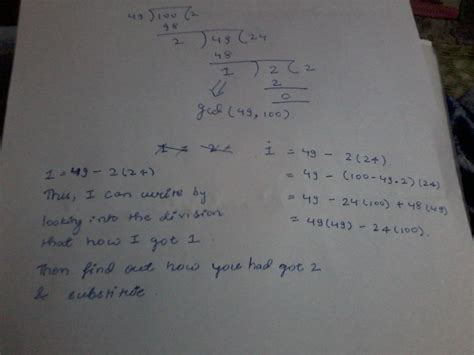 49 ) 100 ( 2
98
2 ) 49 ( 24
48
1 ) 2 ( 2
2
0
gcd (49, 100)
1 = 49 - 2(24)
Thus, I can write by
looking into the division
that how I got 1.
Then find out how you had got 2
& substitute.
1 = 49 - 2(24).
= 49 - (100-49.2)(24)
= 49 - 24(100) + 48(49)
= 49(49) - 24(100).